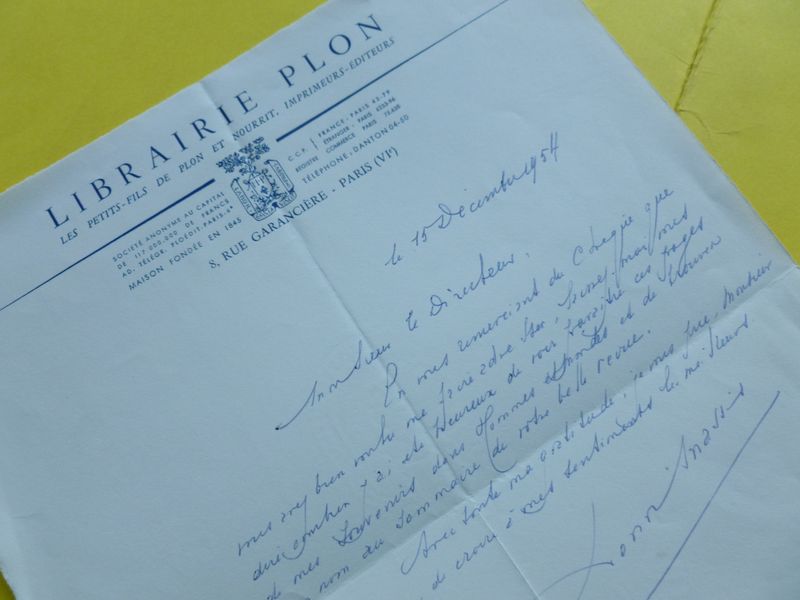 LIBRAIRIE PLON
LES PETITS-FILS DE PLON ET NOURRIT, IMPRIMEURS-ÉDITEURS
SOCIÉTÉ ANONYME AU CAPITAL
DE 117.000.000 DE FRANCS
AD. TÉLÉGR. PLOÉDIT-PARIS-6e
MAISON FONDÉE EN
C.C.P. FRANCE-PARIS 43-79
ÉTRANGER - PARIS
REGISTRE COMMERCE PARIS 75.638
TÉLÉPHONE, DANTON 04-50
8, RUE GARANCIÈRE - PARIS (VIe)
le 15 Décembre 1954
Monsieur le Directeur,
En vous remerciant du chèque que
vous avez bien voulu me faire adresser, laissez-moi vous
dire combien j'ai été heureux de voir paraître ces pages
de mes Souvenirs dans Hommes et mondes et de trouver
mon nom au sommaire de votre belle revue.
Avec toute ma gratitude, je vous prie, Monsieur
de croire à mes sentiments les meilleurs.
Henri Massis